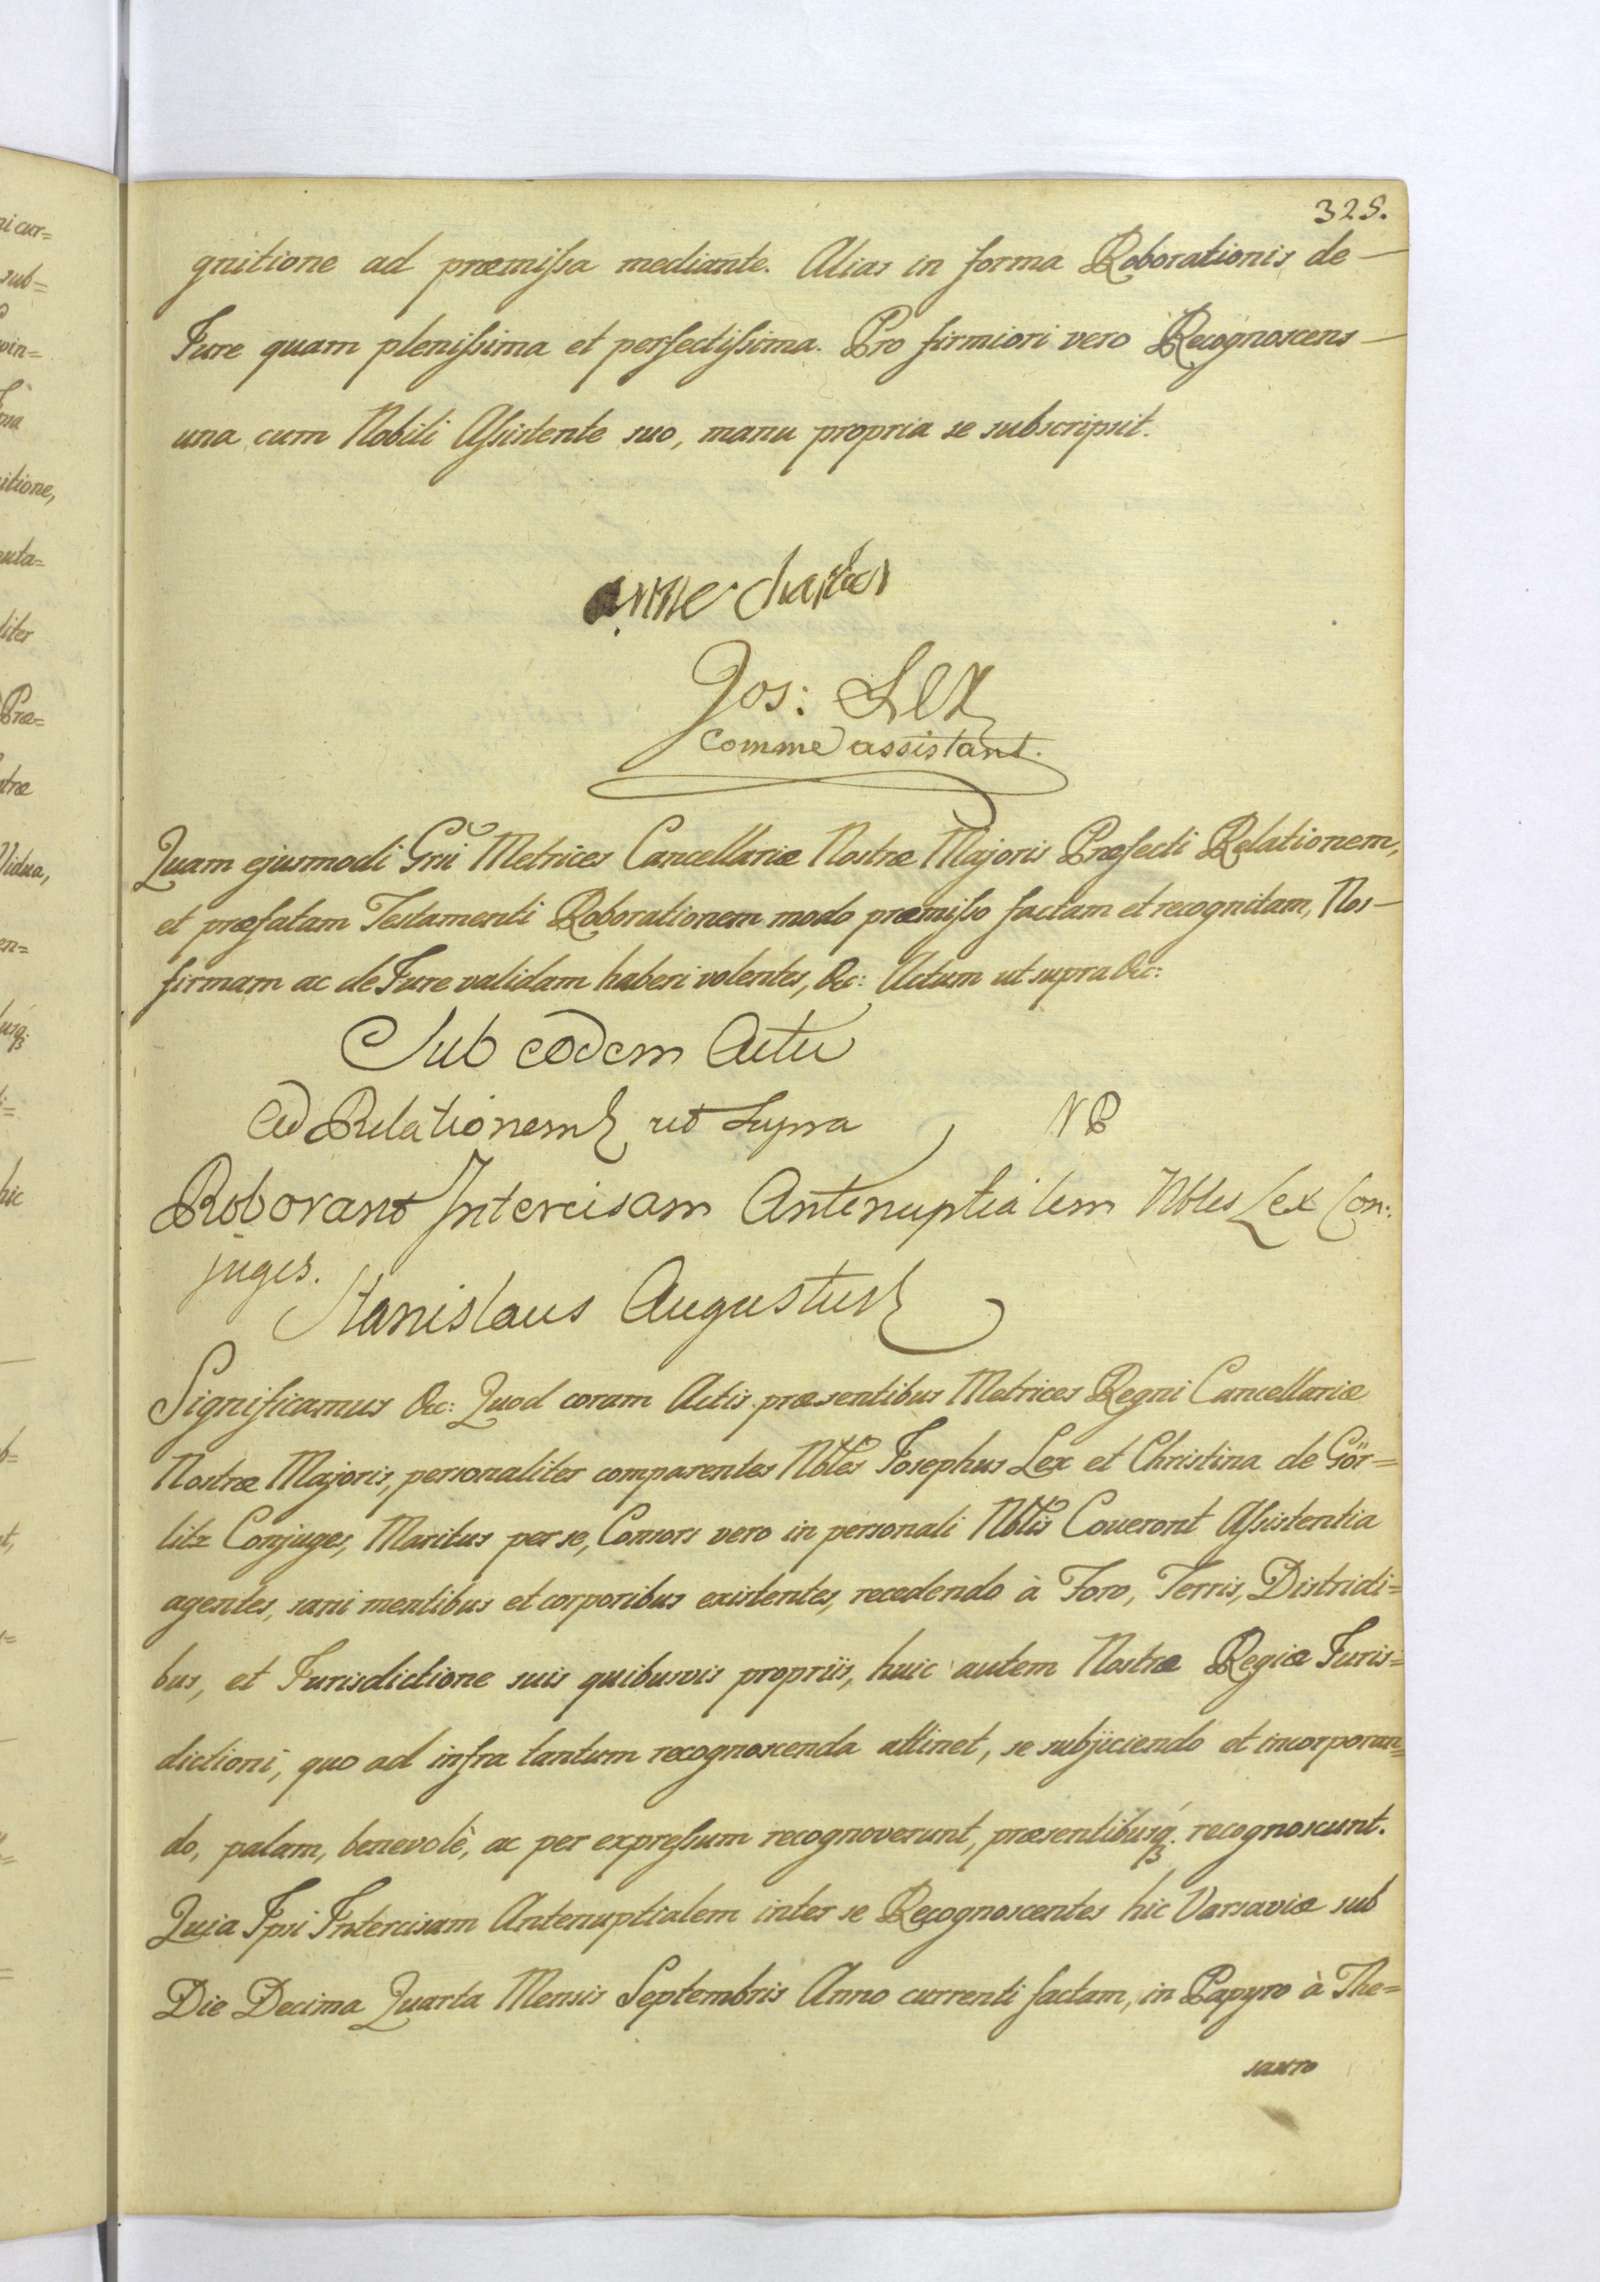 325.
gnitione ad præmissa mediante. Alias in forma Roborationis de
Jure quam plenissima et perfectissima. Pro firmiori vero Recognoscens
una cum Nobili Assistente suo, manu propria se subscripsit.
anne
Jos: Lex
Comme assistant.
Quam ejusmodi Grsi Metrices Cancellariæ Nostræ Majoris Præfecti Relationem,
et præfatam Testamenti Roborationem modo præmisso factam et recognitam, Nos
firmam ac de Jure validam haberi volentes, &c: Actum ut supra &c:
Sub eodem Actu
Ad Relationem ut Supra NP
Roborant Intercisam Antenuptialem Nbles Lex Con:
juges.
Stanislaus Augustus
Significamus &c: Quod coram Actis præsentibus Metrices Regni Cancellariæ
Nostræ Majoris, personaliter comparentes Nbles Josephus Lex et Christina de Gör=
litz Conjuges, Maritus per se, Consors vero in personali Nblis Coueront Assistentia
agentes, sani mentibus et corporibus existentes, recedendo à Foro, Terris, Districti=
bus, et Jurisdictione suis quibusvis propriis, huic autem Nostræ Regiæ Juris=
dictioni, quo ad infra tantum recognoscenda attinet, se subjiciendo et incorporan=
do, palam, benevolè, ac per expressum recognoverunt, præsentibusq; recognoscunt.
Quia Ipsi Intercisam Antenuptialem inter se Recognoscentes hic Varsaviæ sub
Die Decima Quarta Mensis Septembris Anno currenti factam, in Papyro à The=
sauro
cur=
sub=
vin=
itione,
liter
Præ=
Vidua,
en=
hic